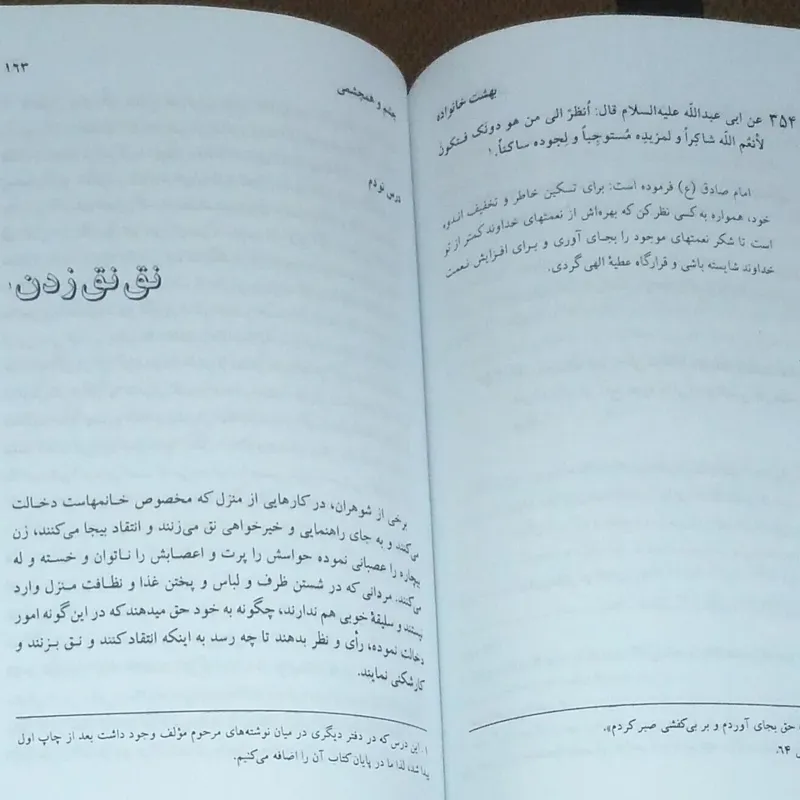 بهشت خانواده
۳۵۴ عن ابی عبداللّه علیه‌السلام قال: اُنظرْ الی من هو دونَک فـتکونَ
لأنعُم اللّه شاکِراً و لمزیدِه مُستوجِباً و لِجوده ساکناً.۱
امام صادق (ع) فرموده است: برای تسکین خاطر و تخفیف اندوه
خود، همواره به کسی نظر کن که بهره‌اش از نعمتهای خداوند کمتر از تو
است تا شکر نعمتهای موجود را بجای آوری و برای افزایش نعمت
خداوند شایسته باشی و قرارگاه عطیهٔ الهی گردی.
حق بجای آوردم و بر بی‌کفشی صبر کردم».
۶۴.
چشم و همچشمی
۱۶۳
درس نودم
نق نق زدن۱
برخی از شوهران، در کارهایی از منزل که مخصوص خانمهاست دخالت
می‌کنند و به جای راهنمایی و خیرخواهی نق می‌زنند و انتقاد بیجا می‌کنند، زن
بیچاره را عصبانی نموده حواسش را پرت و اعصابش را ناتوان و خسته و له
می‌کنند. مردانی که در شستن ظرف و لباس و پختن غذا و نظافت منزل وارد
نیستند و سلیقهٔ خوبی هم ندارند، چگونه به خود حق میدهند که در این گونه امور
دخالت نموده، رأی و نظر بدهند تا چه رسد به اینکه انتقاد کنند و نـق بـزنند و
کارشکنی نمایند.
۱. این درس که در دفتر دیگری در میان نوشته‌های مرحوم مؤلف وجود داشت بعد از چاپ اول
پیدا شد، لذا ما در پایان کتاب آن را اضافه می‌کنیم.